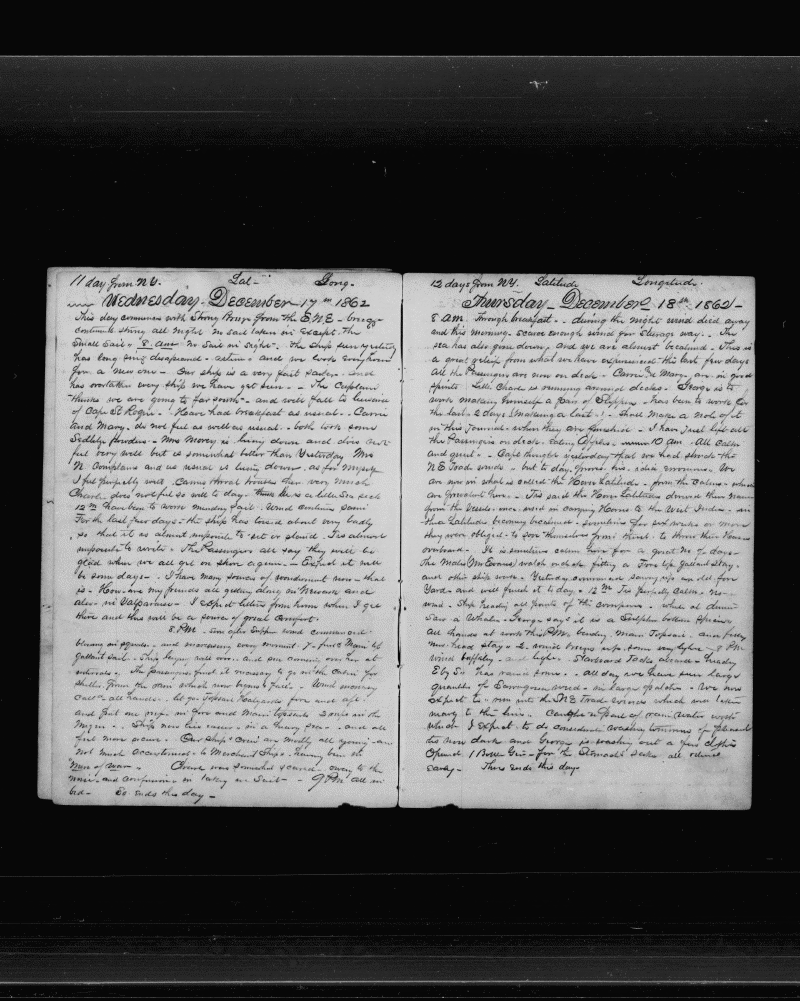 11 day from N.Y. Lat- Long-
Wednesday - December 17th 1862
This day commences with Strong Breeze from the E.N.E - breeze
continued strong all night
Small Sails. 8 am No Sail in sight. The Ship seen yesterday
has long since disappeared - astern - and we look
for a new one - Our ship is a very fast sailer - and
has overtaken every ship we have yet seen - The Captain
thinks we are going to far south - and will fall to leeward
of Cape St Roque - Have had breakfast as usual - Carrie
and Mary do not feel as well as usual - both took some
Sedlitz powders - Mrs is lying down and does not
feel very well but is somewhat better than Yesterday Mrs
N Complains and as usual is lying down. as for myself
I feel perfectly well. Carrie's throat troubles her very much
Charlie does not feel so well to day - is a little Sea sick
12 M have been to work mending Sail. Wind continues same
For the last few days - the ship has rolled about very badly
so that it is almost impossible to sit or stand. Tis almost
impossible to write. The Passengers all say they will be
glad when we all get on shore again - Expect it will
be some days - I have many sources of now - that
is - How are my friends all getting along in and
also in Valparaiso - I expect letters from home when I get
there and this will be a source of great comfort.
8 P.M. Soon after Supper wind commenced
blowing in squalls - and increasing every moment
Gallant Sail. Ship laying well over - and Sea coming over her at
intervals. The passengers find it necessary to go in the Cabin for
shelter from the rain which now begins to fall. Wind increasing
Call all hands - let go Topsail Halyards fore and aft.
and put one reef in Fore and Main Topsails 2 reefs in the
Mizzen. Ship now lies easier in a heavy Sea - and all
feel more secure. Our Ship's Crew are mostly all green - and
Not much accustomed to Merchant Ships. having been in
Men of War - Charlie was somewhat scared - owing to the
noise and confusion in taking in Sail - 9 P.M. all in
bed - So ends this day -
12 days from N.Y. Latitude Longitude
Thursday - December 18th 1862 -
8 am Through breakfast - during the night wind died away
and this morning - scarce enough wind for Steerage way. The
sea has also gone down, and we are almost becalmed - This is
a great relief from what we have experienced this last few days
All the Passengers are now on deck - Carrie & Mary are in good
spirits Little Charlie is running around decks. George is to
work making himself a Pair of Slippers - has been to work for
the last 2 days making a Last! - Shall make a note of it
in this Journal when they are finished - I have just left all
the Passengers on deck. Eating Apples. 10 am - All Calm
and quiet - Capt thought yesterday that we had struck the
N.E. Trade winds - but to day proves his idea erroneous. We
are now in what is called the Horse Latitudes - from the Calms - which
are prevalent here - Tis said the Horse Latitudes derived their name
from the Vessels once used in carrying Horses to the West Indies - in
these Latitudes becoming becalmed - sometimes for six weeks or more
they were obliged to save themselves from thirst to throw their Horses
overboard - It is sometimes calm here for a great No of days
The Mate (Mr Evans) watch on deck fitting a Fore Top Gallant Stay -
and other ship work - Yesterday commenced sawing up an old fore
Yard - and will finish it to day. 12 M Tis perfectly Calm - no
wind - Ship heading all points of the compass. while at dinner
Saw a Whale. George says it is a Sulphur bottom Species
All hands at work this P.M. bending Main Topsail - and fitting
new head stays - 2. wind breezes up from 8 P.M.
wind baffling and light. Starboard Tacks aboard - heading
E by S. has rained some. all day we have seen large
quantities of Sea weed in large patches. We now
expect to run into the N.E. Trade winds which will take us
nearly to the Line. Caught a Barrel of rain water
which I expect to do considerable washing tomorrow if pleasant
tis now dark and George is washing out a few clothes
Opened 1 Bottle Gin - for the Stomach's sake. all retired
early - Thus ends this day